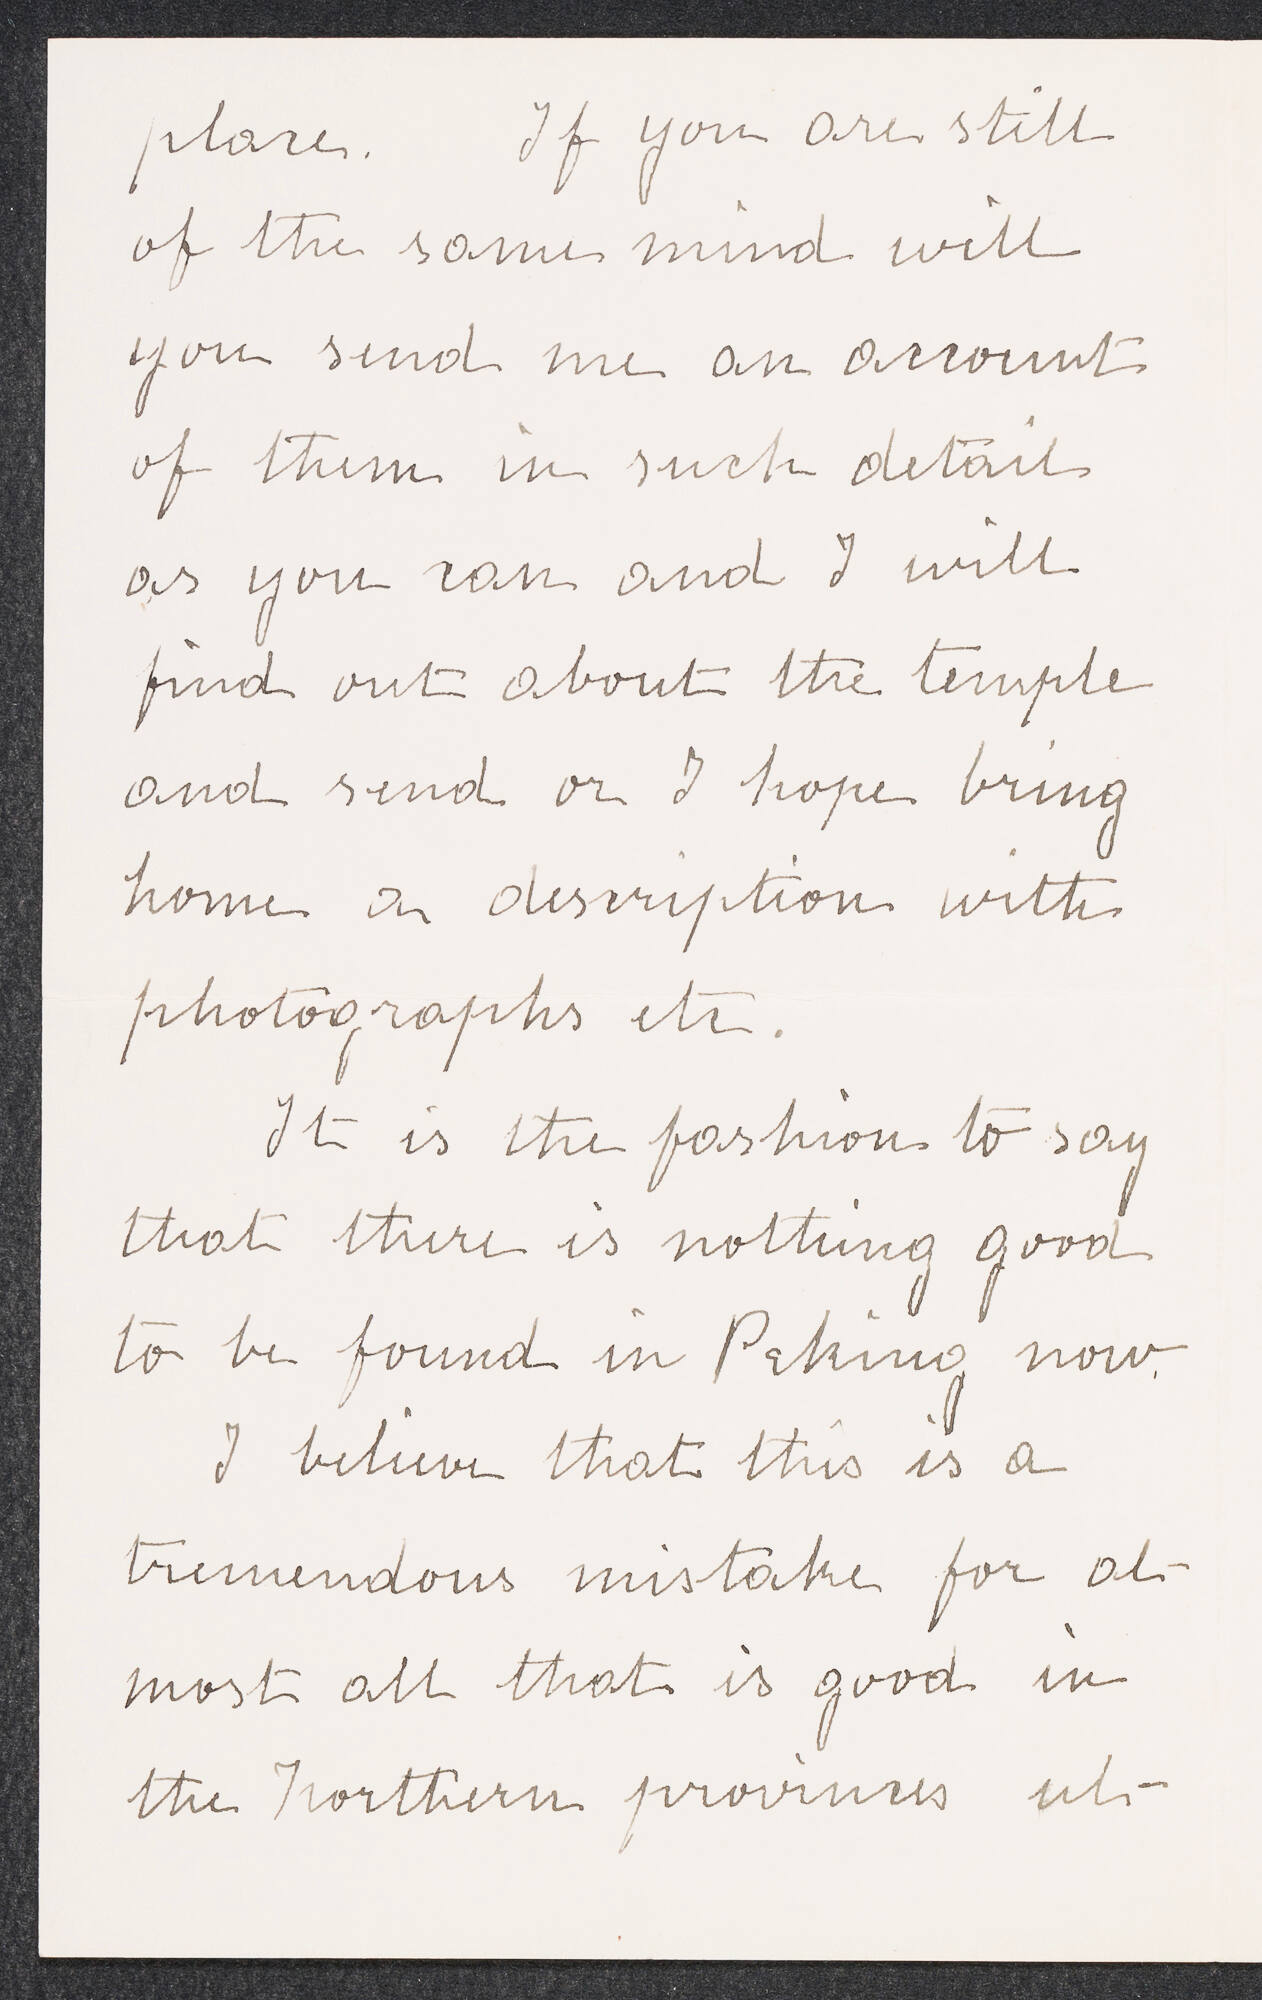 place. If you are still
of the same mind will
you send me an account
of them in such detail
as you can and I will
find out about the temple
and send or I hope bring
home a description with
photographs etc.
It is the fashion to say
that there is nothing good
to be found in Peking now.
I believe that this is a
tremendous mistake for al-
most all that is good in
the Northern provinces ul-